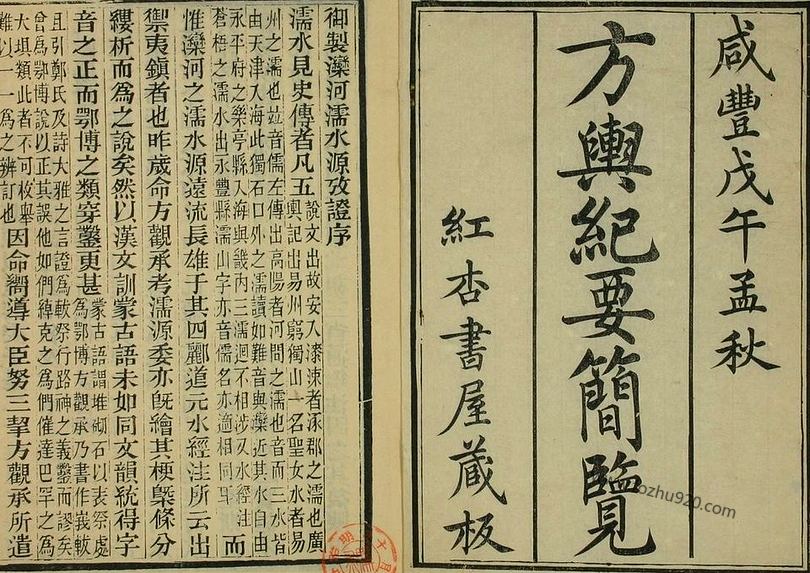 咸豐戊午孟秋
方輿紀要簡覽
紅杏書屋藏板
御製灤河濡水源攷證序
濡水見史傳者凡五說文出故安入漆涑者涿郡之濡也廣
輿記出易州窮獨山一名聖女水者易
州之濡也竝音儒左傳出高陽者河間之濡也音而三水皆
由天津入海此獨石口外之濡讀如難音與灤近其水自由
永平府之樂亭縣入海與畿內三濡迥不相涉又水經注
蒼梧之濡水出永豐縣濡山字亦音儒名亦適相同耳而
惟灤河之濡水源遠流長雄于其四酈道元水經注所云出
禦夷鎮者也昨歲命方觀承考濡源委亦旣繪其梗槩條分
縷析而爲之說矣然以漢文訓蒙古語未如同文韻統得字
音之正而鄂博之類穿鑿更甚蒙古語謂堆砌石以表祭處
爲鄂博方觀承乃書作峩軷
且引鄭氏及詩大雅之言證爲軷祭行路神之義鑿而謬矣
曾爲鄂博說以正其誤他如們綽克之爲們催達巴罕之爲
大壩類此者不可枚舉
難以一一爲之辨訂也因命嚮導大臣努三挈方觀承所遣
ozhu920.com